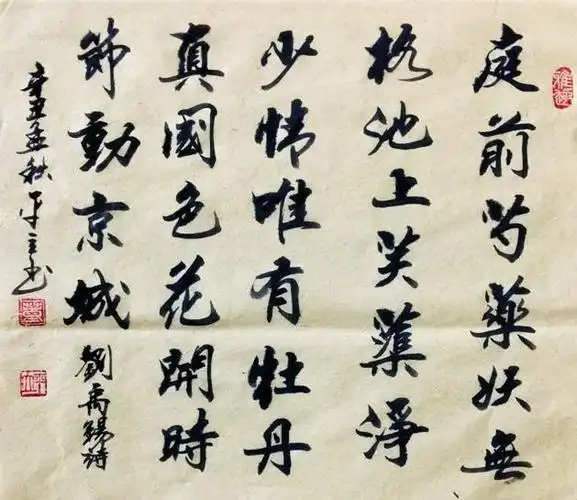 庭前芍藥妖無
格池上芙蕖淨
少情唯有牡丹
真國色花開時
節動京城
劉禹錫詩
辛丑孟秋